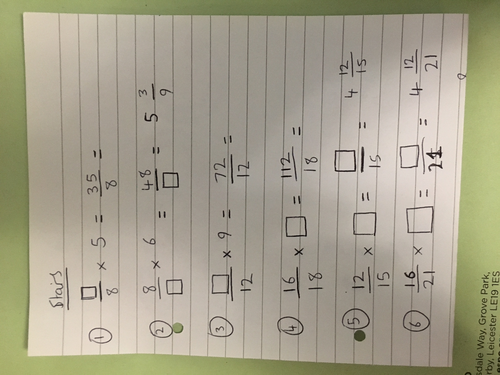 Stairs
① □/8 × 5 = 35/8 =
② 8/□ × 6 = 48/□ = 5 3/9
③ □/12 × 9 = 72/12 =
④ 16/18 × □ = 112/18 =
⑤ 12/15 × □ = □/15 = 4 12/15
⑥ 16/21 × □ = □/21 = 4 12/21
sdale Way, Grove Park,
rby, Leicester LE19 1ES